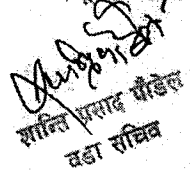 शान्ति प्रसाद पौडेल
वडा सचिव